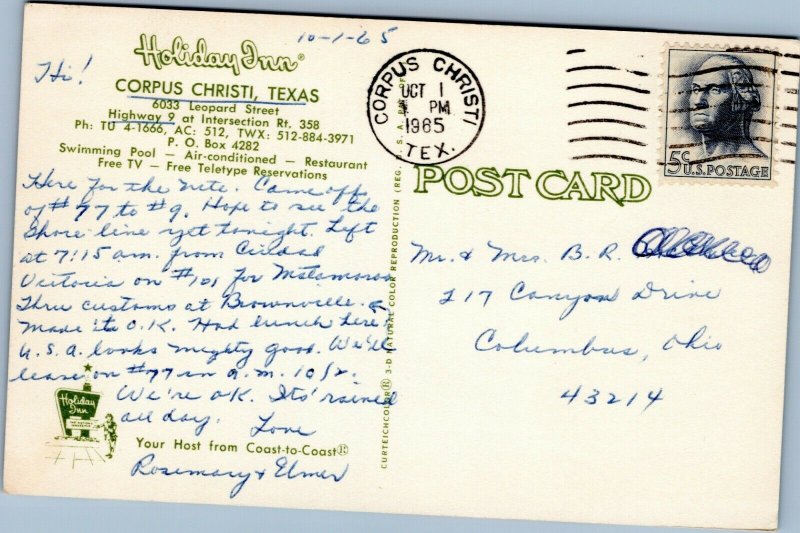 10-1-65
Holiday Inn®
Hi!
CORPUS CHRISTI, TEXAS
6033 Leopard Street
Highway 9 at Intersection Rt. 358
Ph: TU 4-1666, AC: 512, TWX: 512-884-3971
P. O. Box 4282
Swimming Pool — Air-conditioned — Restaurant
Free TV — Free Teletype Reservations
Here for the nite. Came off
of #77 to #9. Hope to see the
shore line yet tonight. Left
at 7:15 am. from Ciudad
Victoria on #101 for Matamoras
Thru customs at Brownville. &
made it O.K. Had lunch here.
U.S.A. looks mighty good. We'll
leave on #77 in a.m. 10/2.
We're OK. Its' rained
all day. Love
Rosemary & Elmer
Holiday
Inn
Your Host from Coast-to-Coast®
CURTEICHCOLOR® 3-D NATURAL COLOR REPRODUCTION (REG. U.S.A. PAT. OFF.)
CORPUS CHRISTI
OCT 1
PM
1965
TEX.
5¢ U.S. POSTAGE
POST CARD
Mr. & Mrs. B. R.
217 Canyon Drive
Columbus, Ohio
43214